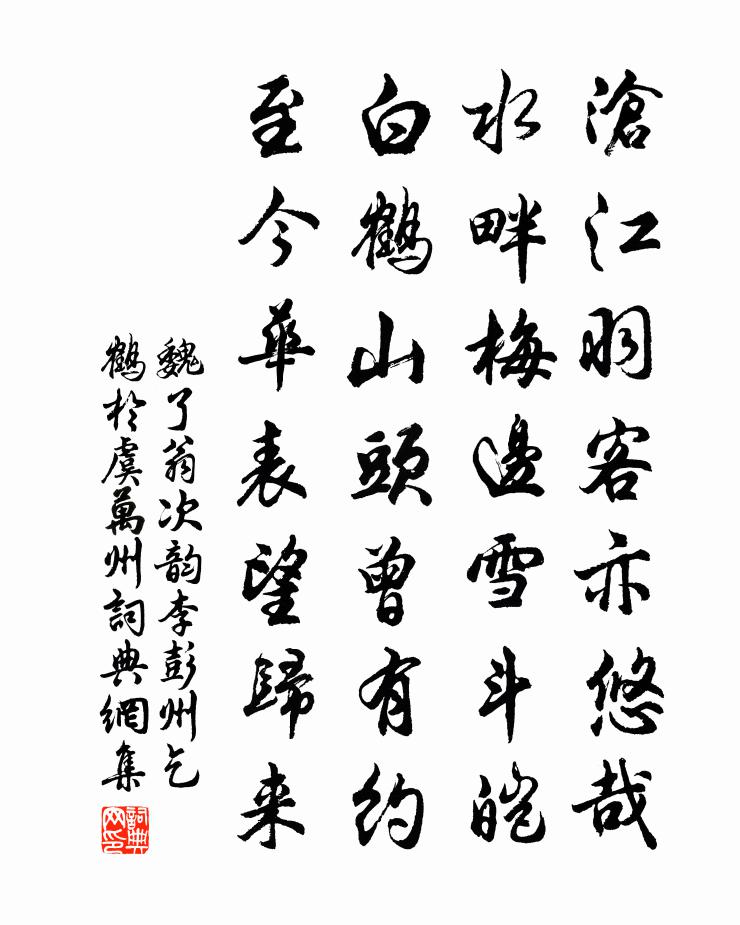 滄江羽客亦悠哉
水畔梅邊雪斗皚
白鶴山頭曾有約
至今華表望歸来
魏了翁次韵李彭州乞
鶴於虞萬州詞典網集
詞典网印